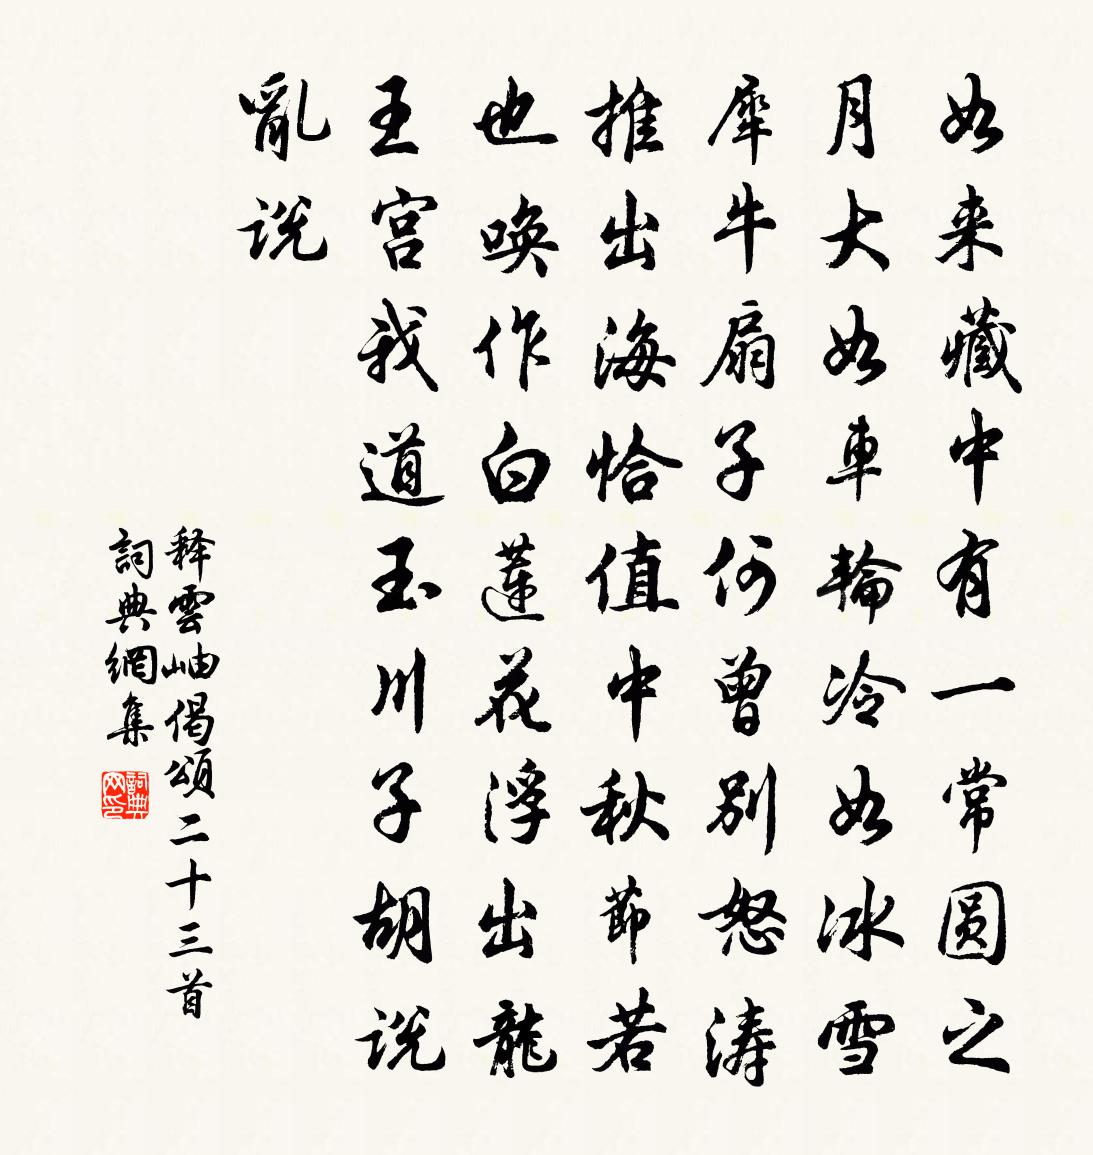 如来藏中有一常圆之
月大如車輪冷如冰雪
犀牛扇子何曾别怒涛
推出海恰值中秋節若
也唤作白蓮花浮出龍
王宫我道玉川子胡说
亂说
释雲岫偈頌二十三首
詞典網集
詞典
网印